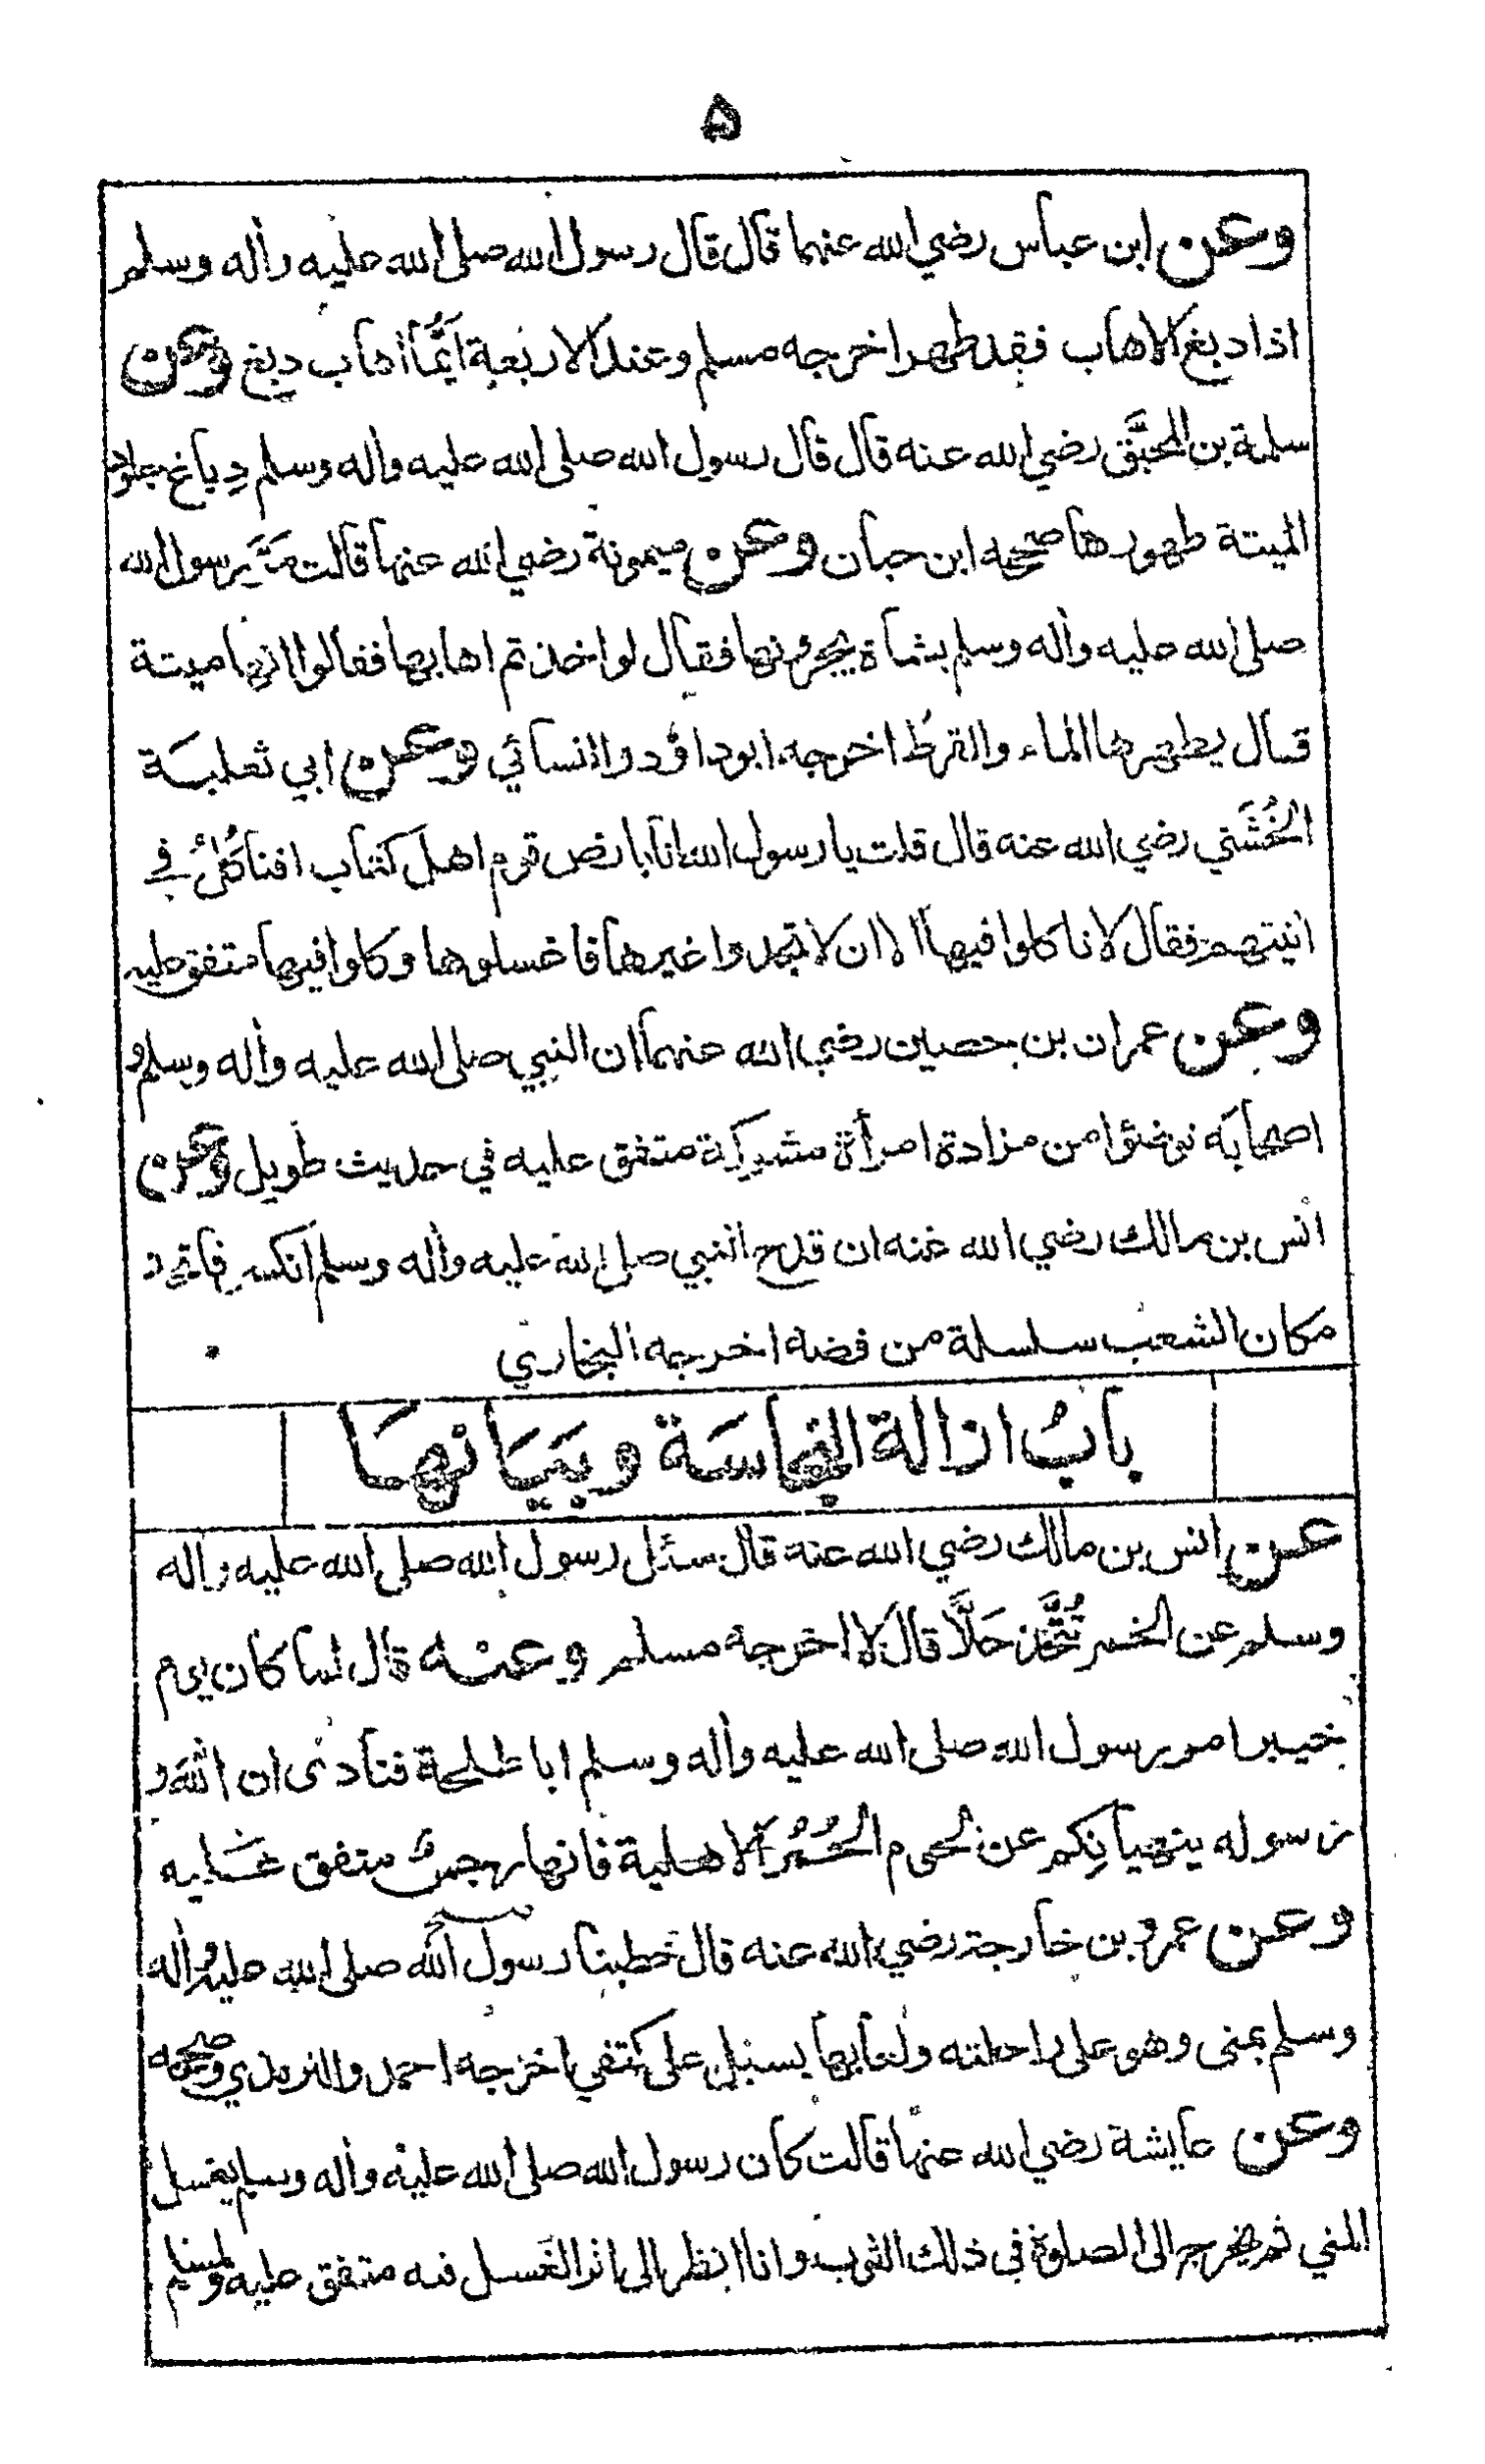 ۵
وعن ابن عباس رضي الله عنهما قال قال رسول الله صلى الله عليه واٰله وسلم
اذا دبغ الاهاب فقد طهر اخرجه مسلم وعند الاربعة اَيُّمَا اهاب دبغ وعن
سلمة بن المحبَّق رضي الله عنه قال قال رسول الله صلى الله عليه واٰله وسلم دِباغ جلود
الميتة طهورها صححه ابن حبان وعن ميمونة رضي الله عنها قالت مَرَّ رسول الله
صلى الله عليه واٰله وسلم بشاة يجرونها فقال لو اخذتم اهابها فقالوا انها ميتة
قال يطهرها الماء والقرظ اخرجه ابوداؤد والنسائي وعن ابي ثعلبة
الخُشَني رضي الله عنه قال قلت يا رسول الله انا بارض قوم اهل كتاب افنأكُلُ في
انيتهم فقال لا تاكلوا فيها الا ان لا تجدوا غيرها فاغسلوها وكلوا فيها متفق عليه
وعن عمران بن حصين رضي الله عنهما ان النبي صلى الله عليه واٰله وسلم و
اصحابه توضؤا من مزادة امرأة مشركة متفق عليه في حديث طويل وعن
انس بن مالك رضي الله عنه ان قدح النبي صلى الله عليه واٰله وسلم انكسر فاتخذ
مكان الشعب سلسلة من فضة اخرجه البخاري
بابُ ازالة النجاسَة وبَيَانهَا
عن انس بن مالك رضي الله عنه قال سئل رسول الله صلى الله عليه واٰله
وسلم عن الخمر تُتَّخذ خَلًّا قال لا اخرجه مسلم وعنه قال لما كان يوم
خيبر امر رسول الله صلى الله عليه واٰله وسلم ابا طلحة فنادى ان الله و
رسوله ينهيانِكم عن لحوم الحُمُر الاهلية فانها رجسٌ متفق عَليه
وعن عمرو بن خارجة رضي الله عنه قال خطبنا رسول الله صلى الله عليه واٰله
وسلم بمنى وهو على راحلته ولعابها يسيل على كتفي اخرجه احمد والترمذي وصححه
وعن عايشة رضي الله عنها قالت كان رسول الله صلى الله عليه واٰله وسلم يغسل
المني ثم يخرج الى الصلوة في ذلك الثوب وانا انظر الى اثر الغسل فيه متفق عليه ولمسلم